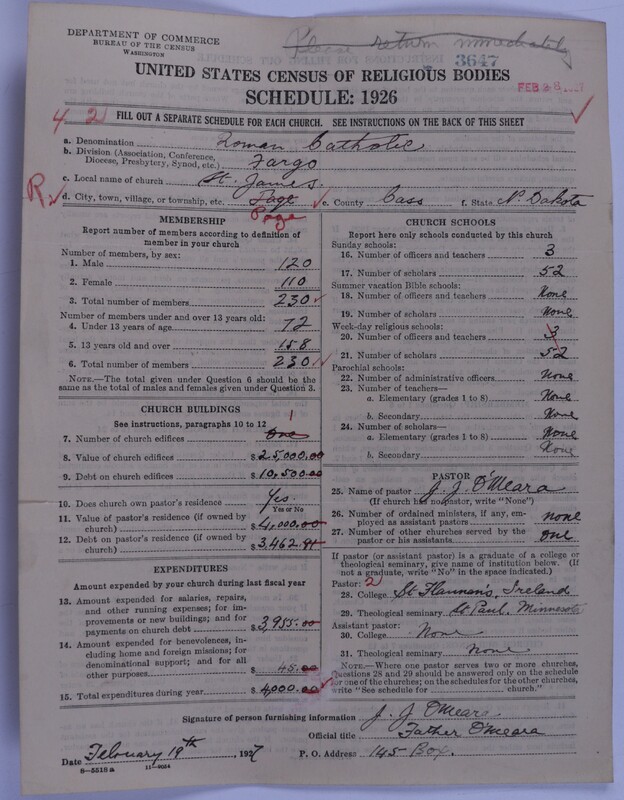 DEPARTMENT OF COMMERCE
BUREAU OF THE CENSUS
WASHINGTON
Please return immediately
3647
UNITED STATES CENSUS OF RELIGIOUS BODIES
SCHEDULE: 1926
FEB 28 1927
4 2
FILL OUT A SEPARATE SCHEDULE FOR EACH CHURCH. SEE INSTRUCTIONS ON THE BACK OF THIS SHEET
a. Denomination Roman Catholic
b. Division (Association, Conference, Diocese, Presbytery, Synod, etc.) Fargo
c. Local name of church St. James
R.
d. City, town, village, or township, etc. Page e. County Cass f. State N. Dakota
Page
MEMBERSHIP
Report number of members according to definition of
member in your church
Number of members, by sex:
1. Male 120
2. Female 110
3. Total number of members 230
Number of members under and over 13 years old:
4. Under 13 years of age 72
5. 13 years old and over 158
6. Total number of members 230
NOTE.—The total given under Question 6 should be
the same as the total of males and females given under Question 3.
CHURCH BUILDINGS
See instructions, paragraphs 10 to 12
1
7. Number of church edifices one
8. Value of church edifices $25,000.00
9. Debt on church edifices $10,500.00
10. Does church own pastor's residence? Yes.
Yes or No
11. Value of pastor's residence (if owned by
church) $4,000.00
12. Debt on pastor's residence (if owned by
church) $3,462.91
EXPENDITURES
Amount expended by your church during last fiscal year
13. Amount expended for salaries, repairs,
and other running expenses; for im-
provements or new buildings; and for
payments on church debt $3,955.00
14. Amount expended for benevolences, in-
cluding home and foreign missions; for
denominational support; and for all
other purposes $45.00
15. Total expenditures during year $4,000.00
CHURCH SCHOOLS
Report here only schools conducted by this church
Sunday schools:
16. Number of officers and teachers 3
17. Number of scholars 52
Summer vacation Bible schools:
18. Number of officers and teachers None
19. Number of scholars None
Week-day religious schools:
20. Number of officers and teachers 3
21. Number of scholars 52
Parochial schools:
22. Number of administrative officers None
23. Number of teachers—
a. Elementary (grades 1 to 8) None
b. Secondary None
24. Number of scholars—
a. Elementary (grades 1 to 8) None
b. Secondary None
PASTOR
25. Name of pastor J. J. O'Meara
(If church has no pastor, write "None")
26. Number of ordained ministers, if any, em-
ployed as assistant pastors none
27. Number of other churches served by the
pastor or his assistants one
If pastor (or assistant pastor) is a graduate of a college or
theological seminary, give name of institution below. (If
not a graduate, write "No" in the space indicated.)
Pastor: 2
28. College St Flannan's, Ireland
29. Theological seminary St Paul, Minnesota
Assistant pastor:
30. College None
31. Theological seminary None
NOTE.—Where one pastor serves two or more churches,
Questions 28 and 29 should be answered only on the schedule
for one of the churches; on the schedules for the other churches,
write "See schedule for church."
Signature of person furnishing information J. J. O'Meara
Official title Father O'Meara
Date February 19th, 1927 P. O. Address 145 Box.
8—5518 a 11—9024